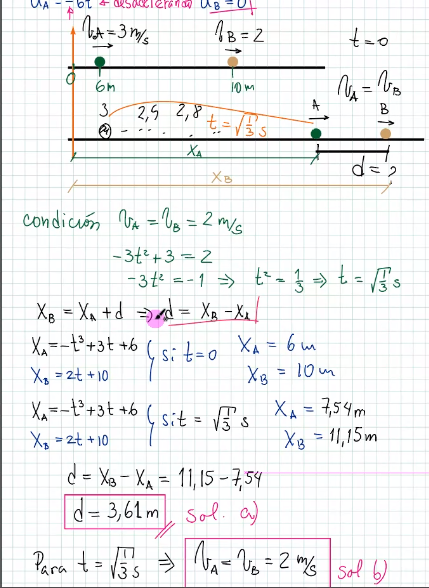 a_A = -6t → desacelerando a_B = 0
v_A = 3 m/s v_B = 2 t = 0
0 6m 10m v_A = v_B
3 2,9 2,8 t = √(1/3) s A B
X_A d = ?
X_B
condición v_A = v_B = 2 m/s
-3t² + 3 = 2
-3t² = -1 ⇒ t² = 1/3 ⇒ t = √(1/3) s
X_B = X_A + d ⇒ d = X_B - X_A
X_A = -t³ + 3t + 6 si t = 0 X_A = 6 m
X_B = 2t + 10 X_B = 10 m
X_A = -t³ + 3t + 6 si t = √(1/3) s X_A = 7,54 m
X_B = 2t + 10 X_B = 11,15 m
d = X_B - X_A = 11,15 - 7,54
d = 3,61 m sol. a)
Para t = √(1/3) s ⇒ v_A = v_B = 2 m/s sol b)